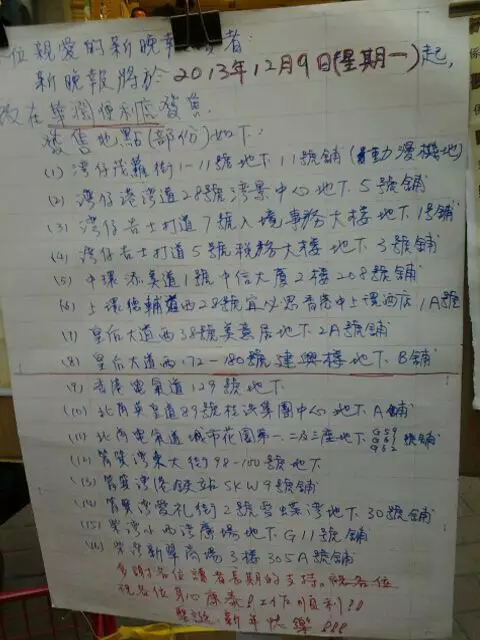 位親愛的新晚報讀者:
新晚報將於2013年12月9日(星期一)起,
改在華潤便利店發售.
發售地點(部份)如下:
(1) 灣仔茂蘿街1-11號地下11號舖(動漫機地)
(2) 灣仔港灣道28號灣景中心地下5號舖
(3) 灣仔告士打道7號入境事務大樓地下1號舖
(4) 灣仔告士打道5號稅務大樓地下3號舖
(5) 中環添美道1號中信大廈2樓208號舖
(6) 上環德輔道西28號宜必思香港中上環酒店1A號
(7) 皇后大道西38號美意居地下2A號舖
(8) 皇后大道西172-180號建興樓地下B舖
(9) 香港電氣道129號地下
(10) 北角英皇道89號桂洪集團中心地下A舖
(11) 北角電氣道城市花園第一二及三座地下G59 G61 G62號舖
(12) 筲箕灣東大街98-100號地下
(13) 筲箕灣港鐵站SKW9號舖
(14) 筲箕灣愛禮街2號雪蝶灣地下30號舖
(15) 柴灣小西灣廣場地下G11號舖
(16) 柴灣新翠商場3樓305A號舖
多謝各位讀者長期的支持,祝各位
祝各位身心康泰!工作順利!!
聖誕、新年快樂!!!